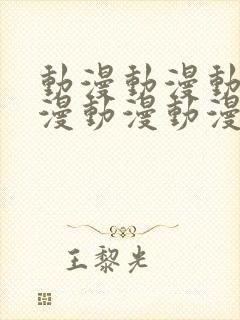 動漫動漫動
漫動漫動漫
王黎光